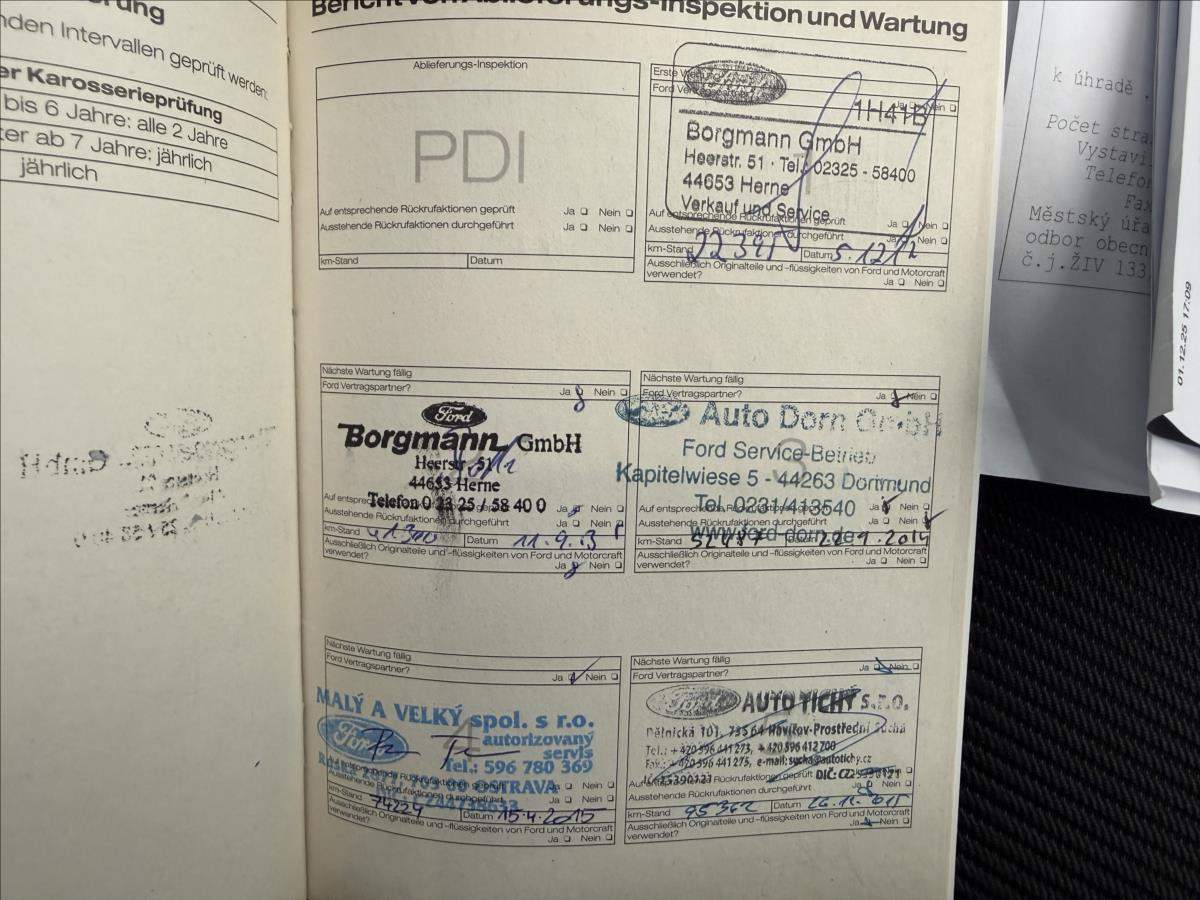 nden Intervallen geprüft werden:
er Karosserieprüfung
bis 6 Jahre: alle 2 Jahre
ter ab 7 Jahre: jährlich
jährlich
Bericht von Ablieferungs-Inspektion und Wartung
Ablieferungs-Inspektion
PDI
Auf entsprechende Rückrufaktionen geprüft Ja Nein
Ausstehende Rückrufaktionen durchgeführt Ja Nein
km-Stand Datum
Erste Wartung
Ford Vertragspartner? Ja Nein
1H41B
Borgmann GmbH
Heerstr. 51 · Tel.: 02325 - 58400
44653 Herne
Verkauf und Service
Auf entsprechende Rückrufaktionen geprüft Ja Nein
Ausstehende Rückrufaktionen durchgeführt Ja Nein
km-Stand Datum 5.12.12
Ausschließlich Originalteile und -flüssigkeiten von Ford und Motorcraft
verwendet? Ja Nein
Nächste Wartung fällig
Ford Vertragspartner? Ja Nein
Ford
Borgmann GmbH
Heerstr. 51
44653 Herne
Telefon 0 23 25 / 58 40 0
Auf entsprechende
Ausstehende Rückrufaktionen durchgeführt
km-Stand 41300 Datum 11.9.13
Ausschließlich Originalteile und -flüssigkeiten von Ford und Motorcraft
verwendet? Ja Nein
Nächste Wartung fällig
Ford Vertragspartner? Ja Nein
Auto Dorn GmbH
3
Ford Service-Betrieb
Kapitelwiese 5 - 44263 Dortmund
Tel. 0231/413540
Auf entsprechende Rückrufaktionen geprüft Ja Nein
Ausstehende Rückrufaktionen durchgeführt Ja Nein
www.ford-dorn.de
km-Stand Datum 22.9.2014
Ausschließlich Originalteile und -flüssigkeiten von Ford und Motorcraft
verwendet? Ja Nein
Nächste Wartung fällig
Ford Vertragspartner? Ja Nein
MALÝ A VELKÝ spol. s r.o.
Ford
4
autorizovaný
servis
Tel.: 596 780 369
OSTRAVA
Ausstehende Rückrufaktionen durchgeführt Ja Nein
km-Stand 74224 Datum 15.4.2015
Ausschließlich Originalteile und -flüssigkeiten von Ford und Motorcraft
verwendet? Ja Nein
Nächste Wartung fällig
Ford Vertragspartner? Ja Nein
Ford
AUTO TICHÝ s.r.o.
Dělnická 101, 73564 Havířov-Prostřední Suchá
Tel.: +420 596 441 273, +420 596 412 700
Fax.: +420 596 441 273, e-mail: sucha@autotichy.cz
Rückrufaktionen geprüft DIČ:
Ausstehende Rückrufaktionen durchgeführt Ja Nein
km-Stand 95362 Datum
Ausschließlich Originalteile und -flüssigkeiten von Ford und Motorcraft
verwendet? Ja Nein
k úhradě
Počet stra
Vystavi
Telefo
Fax
Městský úřa
odbor obecn
č.j.ŽIV 133
01.12.25 17:09